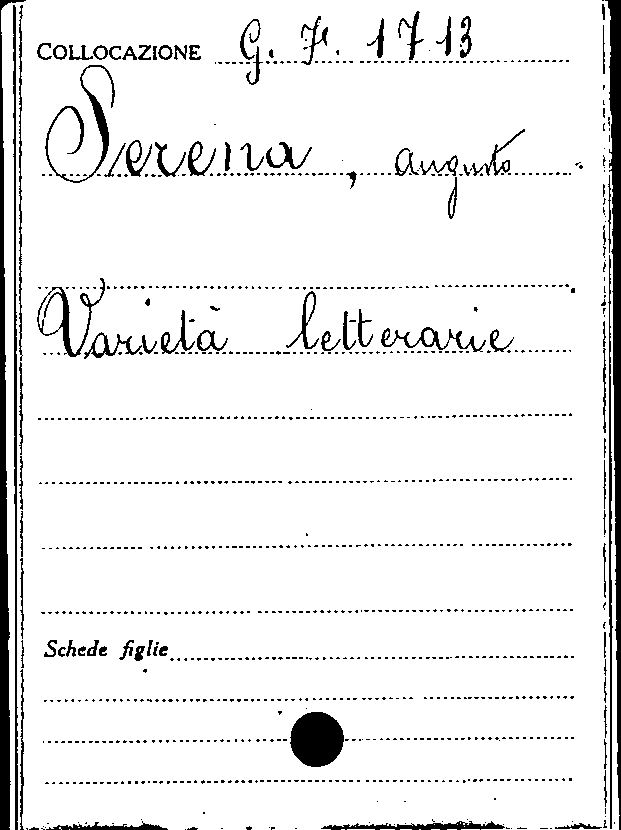 COLLOCAZIONE G. F. 1713
Serena, Augusto
Varietà letterarie
Schede figlie